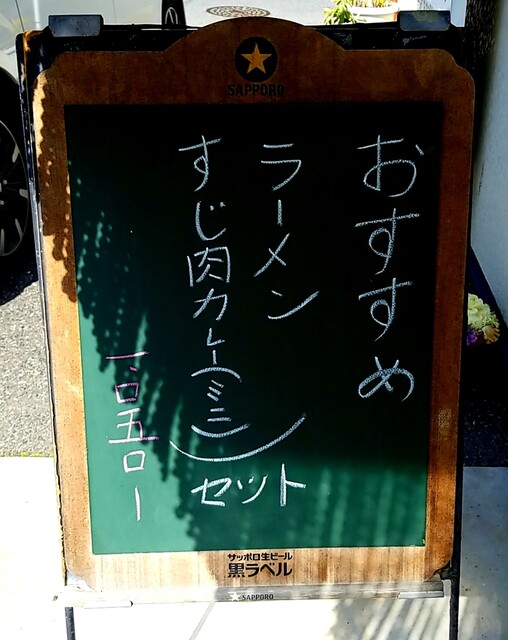 SAPPORO
おすすめ
ラーメン
すじ肉カレー(ミニ)
セット
一、〇五〇ー
サッポロ生ビール
黒ラベル
SAPPORO